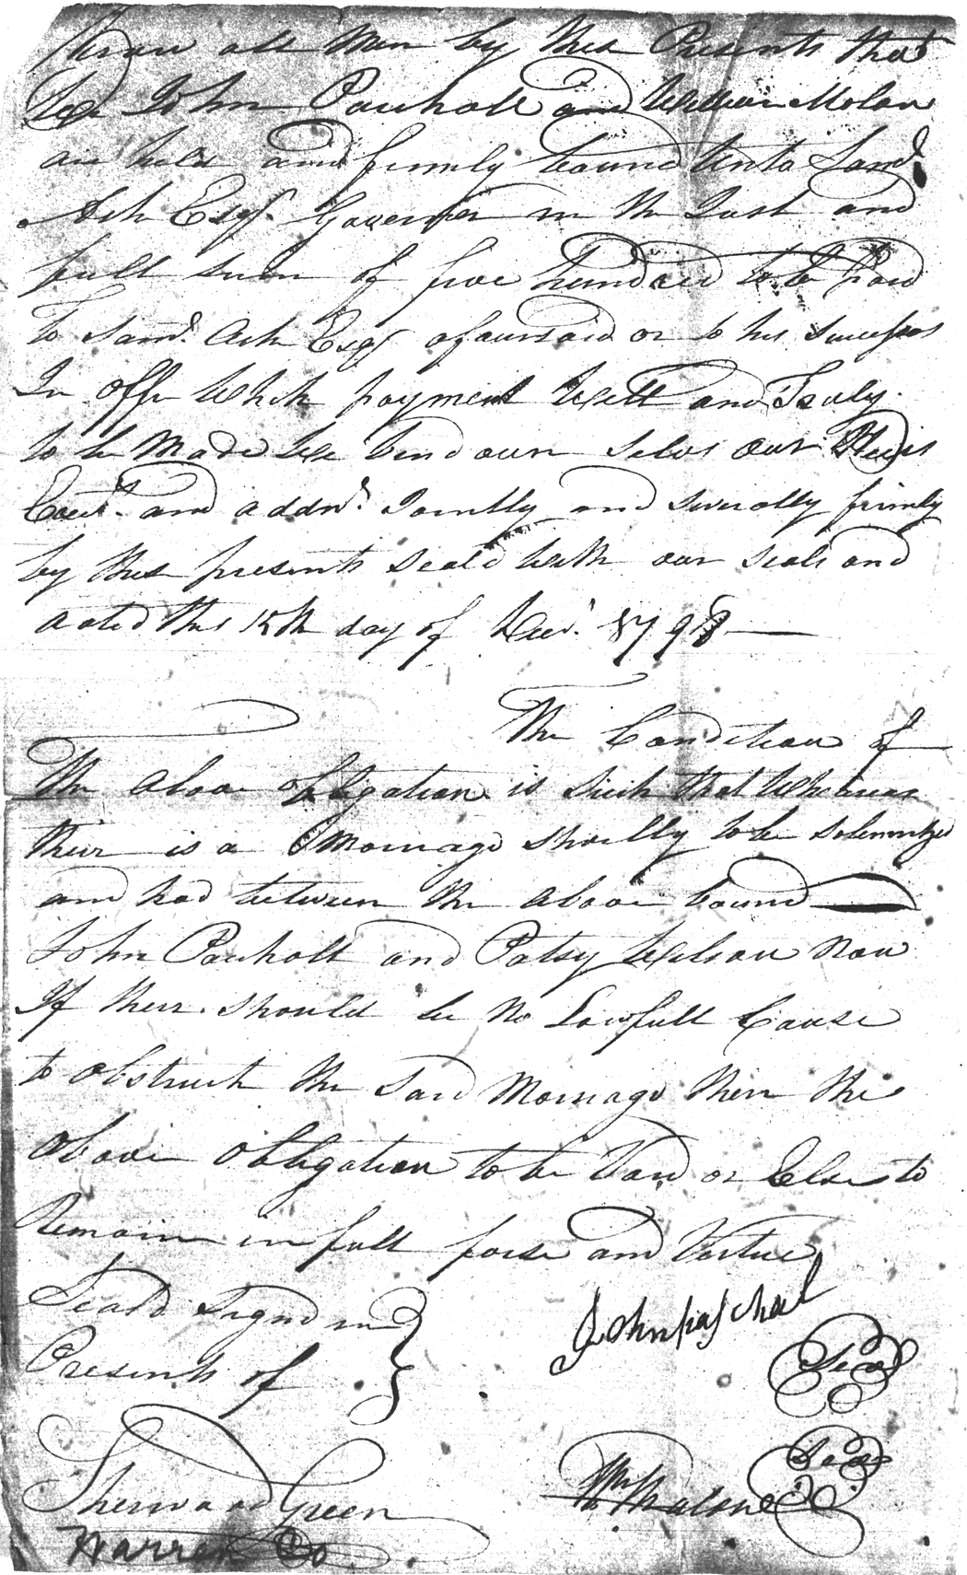 Know all Men by these Presents that
We John Pascholl and William Molon
are held and firmly bound unto Saml.
Ash Esqr. Governer in the Just and
full sum of five hundred to be Paid
To Saml. Ash Esqr afoursaid or to his Successors
In offic Which payment Well and Truly
to be Made We bind our Selvs our Heirs
Exect. and addmr. Jointly and Severally firmly
by these presents Seald With our Seals and
dated this 15th day of Decr. 1798
The Condition of
The above obligation is Such that Wheareas
their is a Marriage Shortly to be Solemnized
and had between the above bound
John Pascholl and Patsy Wilson Now
If their Should be No Lawfull Cause
to obstruct the Said Marriage then the
above obligation to be Void or Else to
Remain in full forse and Vertue
Seald Signd in
Presents of
John paschal
Seal
Wm Malone
Seal
Sherwood Green
Warren Co